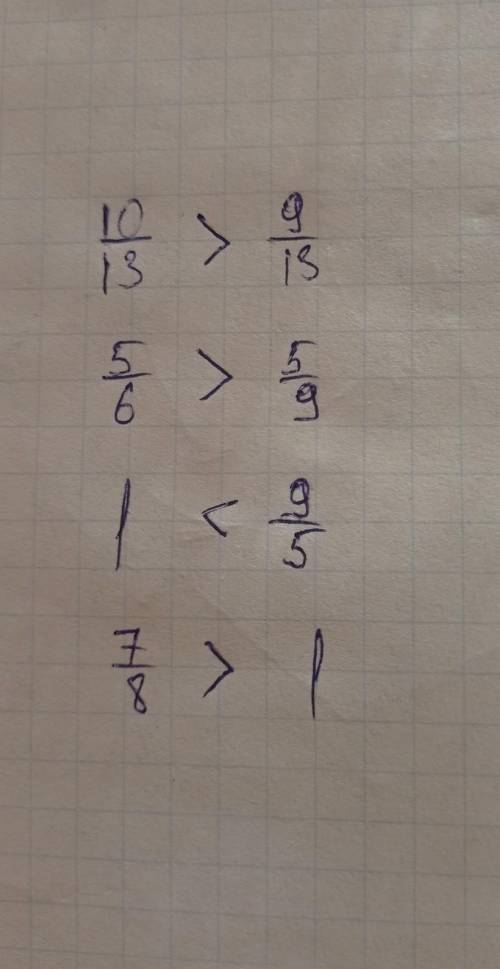 10/13 > 9/13
5/6 > 5/9
1 < 9/5
7/8 > 1